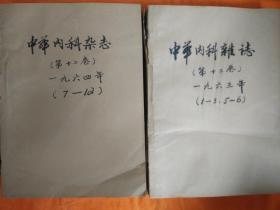 中华内科杂志
(第十二卷)
一九六四年
(7—12)
中華内科雜誌
(第十一卷)
一九六三年
(1—3.5—6)